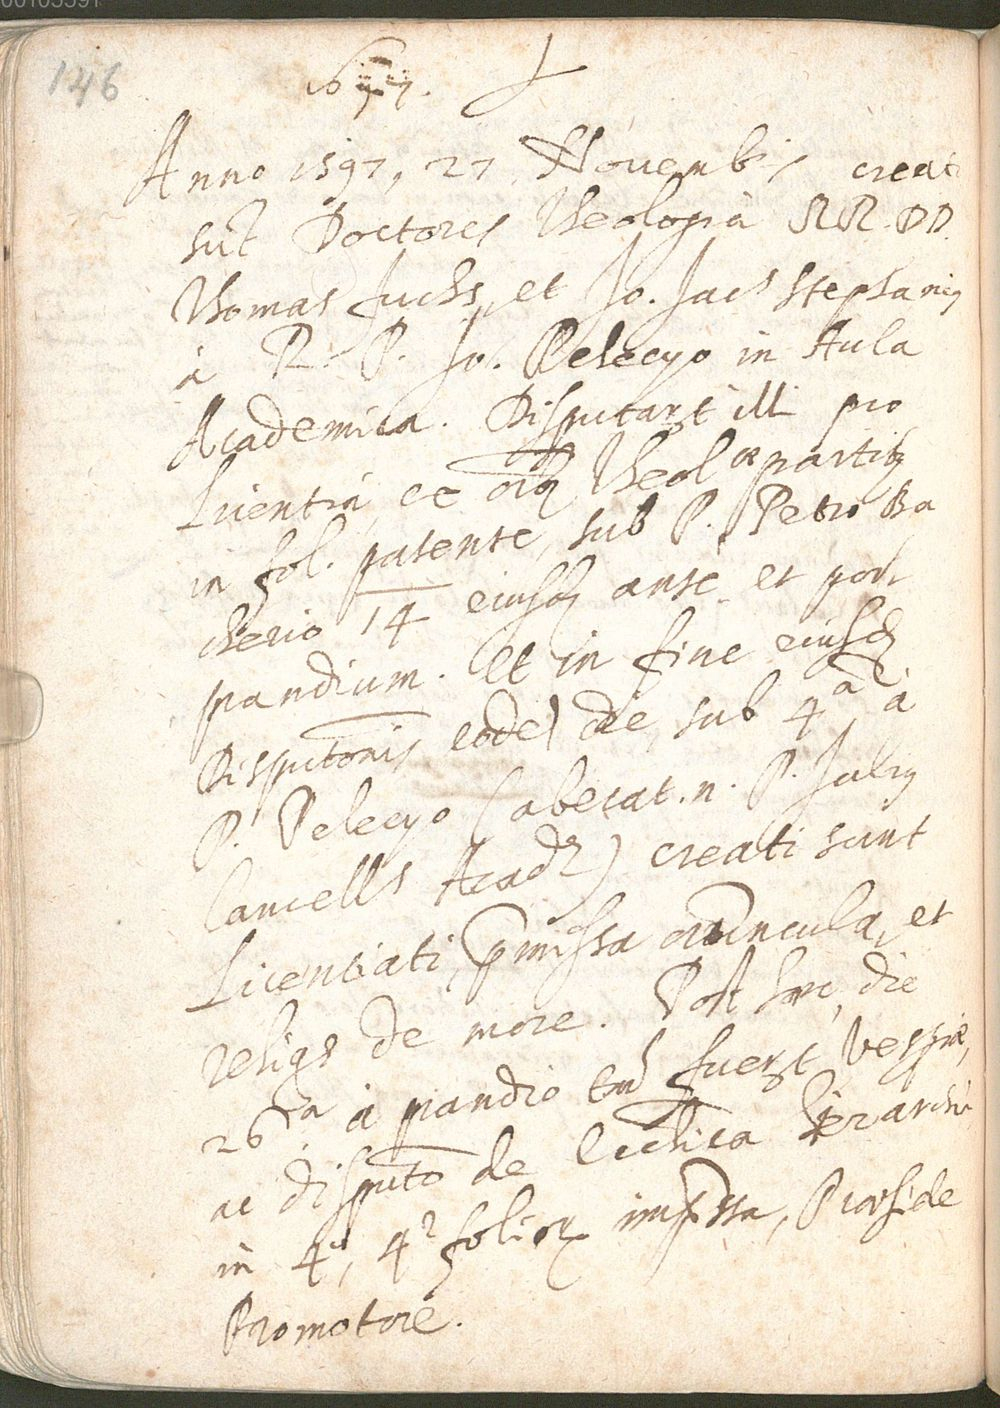 00105591
146
Anno 1597, 27 Nouemb's creati
sūt Doctores Theologiā RR. DD.
Thomas Fuchs, et Jo. Jacs Stephanię
à R. P. Jo. Pelecyo in Aula
Academica. Disputart illi pro
Licentiâ, ex oīb Theolæ partib
in fol. patente, sub P. Petro Ba
cherio 14 eiusd ante et post
prandium. Et in fine eiusd
Disputonis eodē die, sub 4ā, à
P. Pelecyo (aberat. n. P. Julię
Cancells Acadæ) creati sunt
Licentiati, p̄missa orōncula, et
reliqs de more. Post hæc, die
26ta à prandio tm̄ fuert Vesp̄iæ,
ac disputo de Ecclīca Hierarchiâ
in 4°, 4r foliorx imp̄ssa, Præside
Promotore.